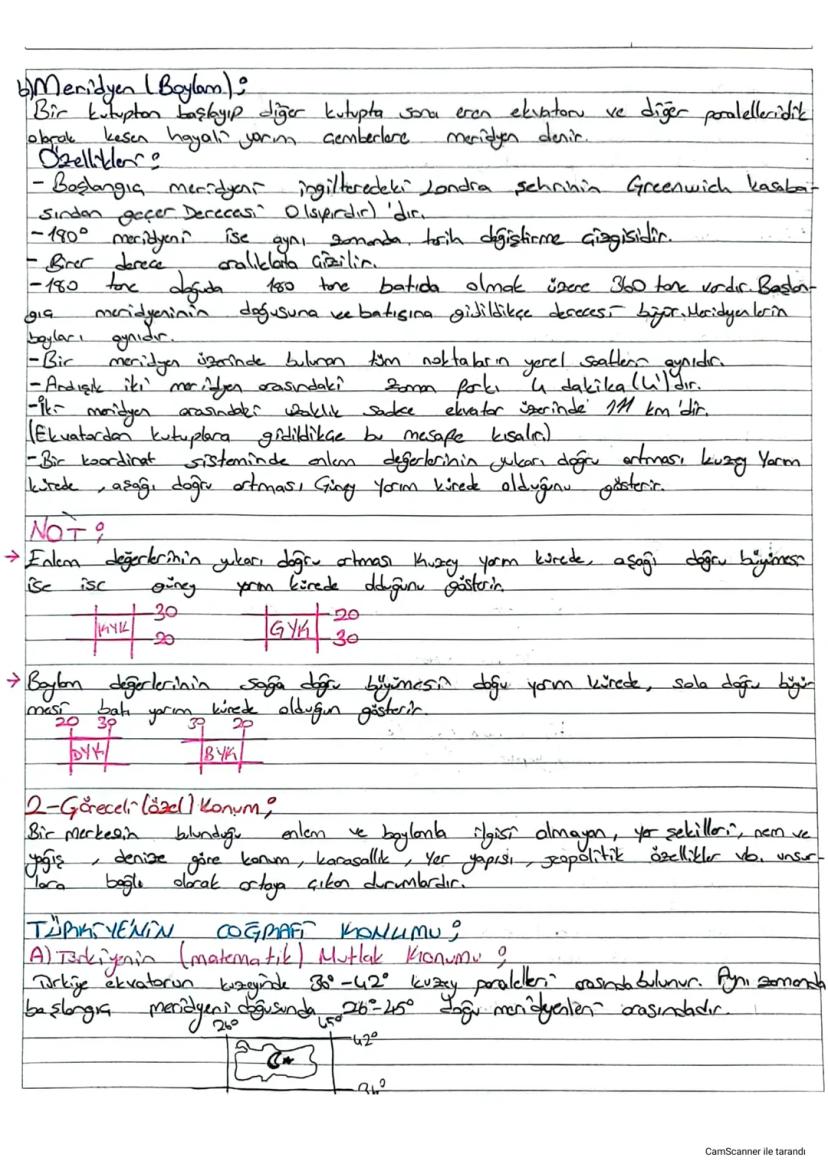 b) Meridyen (Boylam);
Bir kutuptan başlayıp diğer kutupta sona eren ekvatoru ve diğer paralelleri dik
olarak kesen hayali yarım çemberlere meridyen denir.
Özellikleri;
- Başlangıç meridyeni ingilteredeki Londra şehrinin Greenwich kasaba-
sından geçer Derecesi 0 (sıfırdır)'dır.
- 180° meridyeni ise aynı zamanda tarih değiştirme çizgisidir.
- Birer derece aralıklarla çizilir.
- 180 tane doğuda 180 tane batıda olmak üzere 360 tane vardır. Başlan-
gıç meridyeninin doğusuna ve batısına gidildikçe derecesi büyür. Meridyenlerin
boyları aynıdır.
- Bir meridyen üzerinde bulunan tüm noktaların yerel saatleri aynıdır.
- Ardışık iki meridyen arasındaki zaman farkı 4 dakika (4')'dır.
- İki meridyen arasındaki uzaklık sadece ekvator üzerinde 111 km'dir.
(Ekvatordan kutuplara gidildikçe bu mesafe kısalır.)
- Bir koordinat sisteminde enlem değerlerinin yukarı doğru artması kuzey Yarım
kürede, aşağı doğru artması Güney Yarım kürede olduğunu gösterir.
NOT;
→ Enlem değerlerinin yukarı doğru artması Kuzey yarım kürede, aşağı doğru büyümesi
ise ise güney yarım kürede olduğunu gösterir.
30 20
KYK GYK
20 30
→ Boylam değerlerinin sağa doğru büyümesi doğu yarım kürede, sola doğru büyü-
mesi batı yarım kürede olduğun gösterir.
20 30 30 20
DYK BYK
2-Göreceli (özel) Konum;
Bir merkezin bulunduğu enlem ve boylamla ilgisi olmayan, yer şekilleri, nem ve
yağış, denize göre konum, karasallık, Yer yapısı, jeopolitik özellikler vb. unsur-
lara bağlı olarak ortaya çıkan durumlardır.
TÜRKİYE'NİN COĞRAFİ KONUMU;
A) Türkiyenin (matematik) Mutlak Konumu;
Türkiye ekvatorun kuzeyinde 36°-42° kuzey paralelleri arasında bulunur. Aynı zamanda
başlangıç meridyeni doğusunda 26°-45° doğu meridyenleri arasındadır.
26° 45°
42°
36°
CamScanner ile tarandı